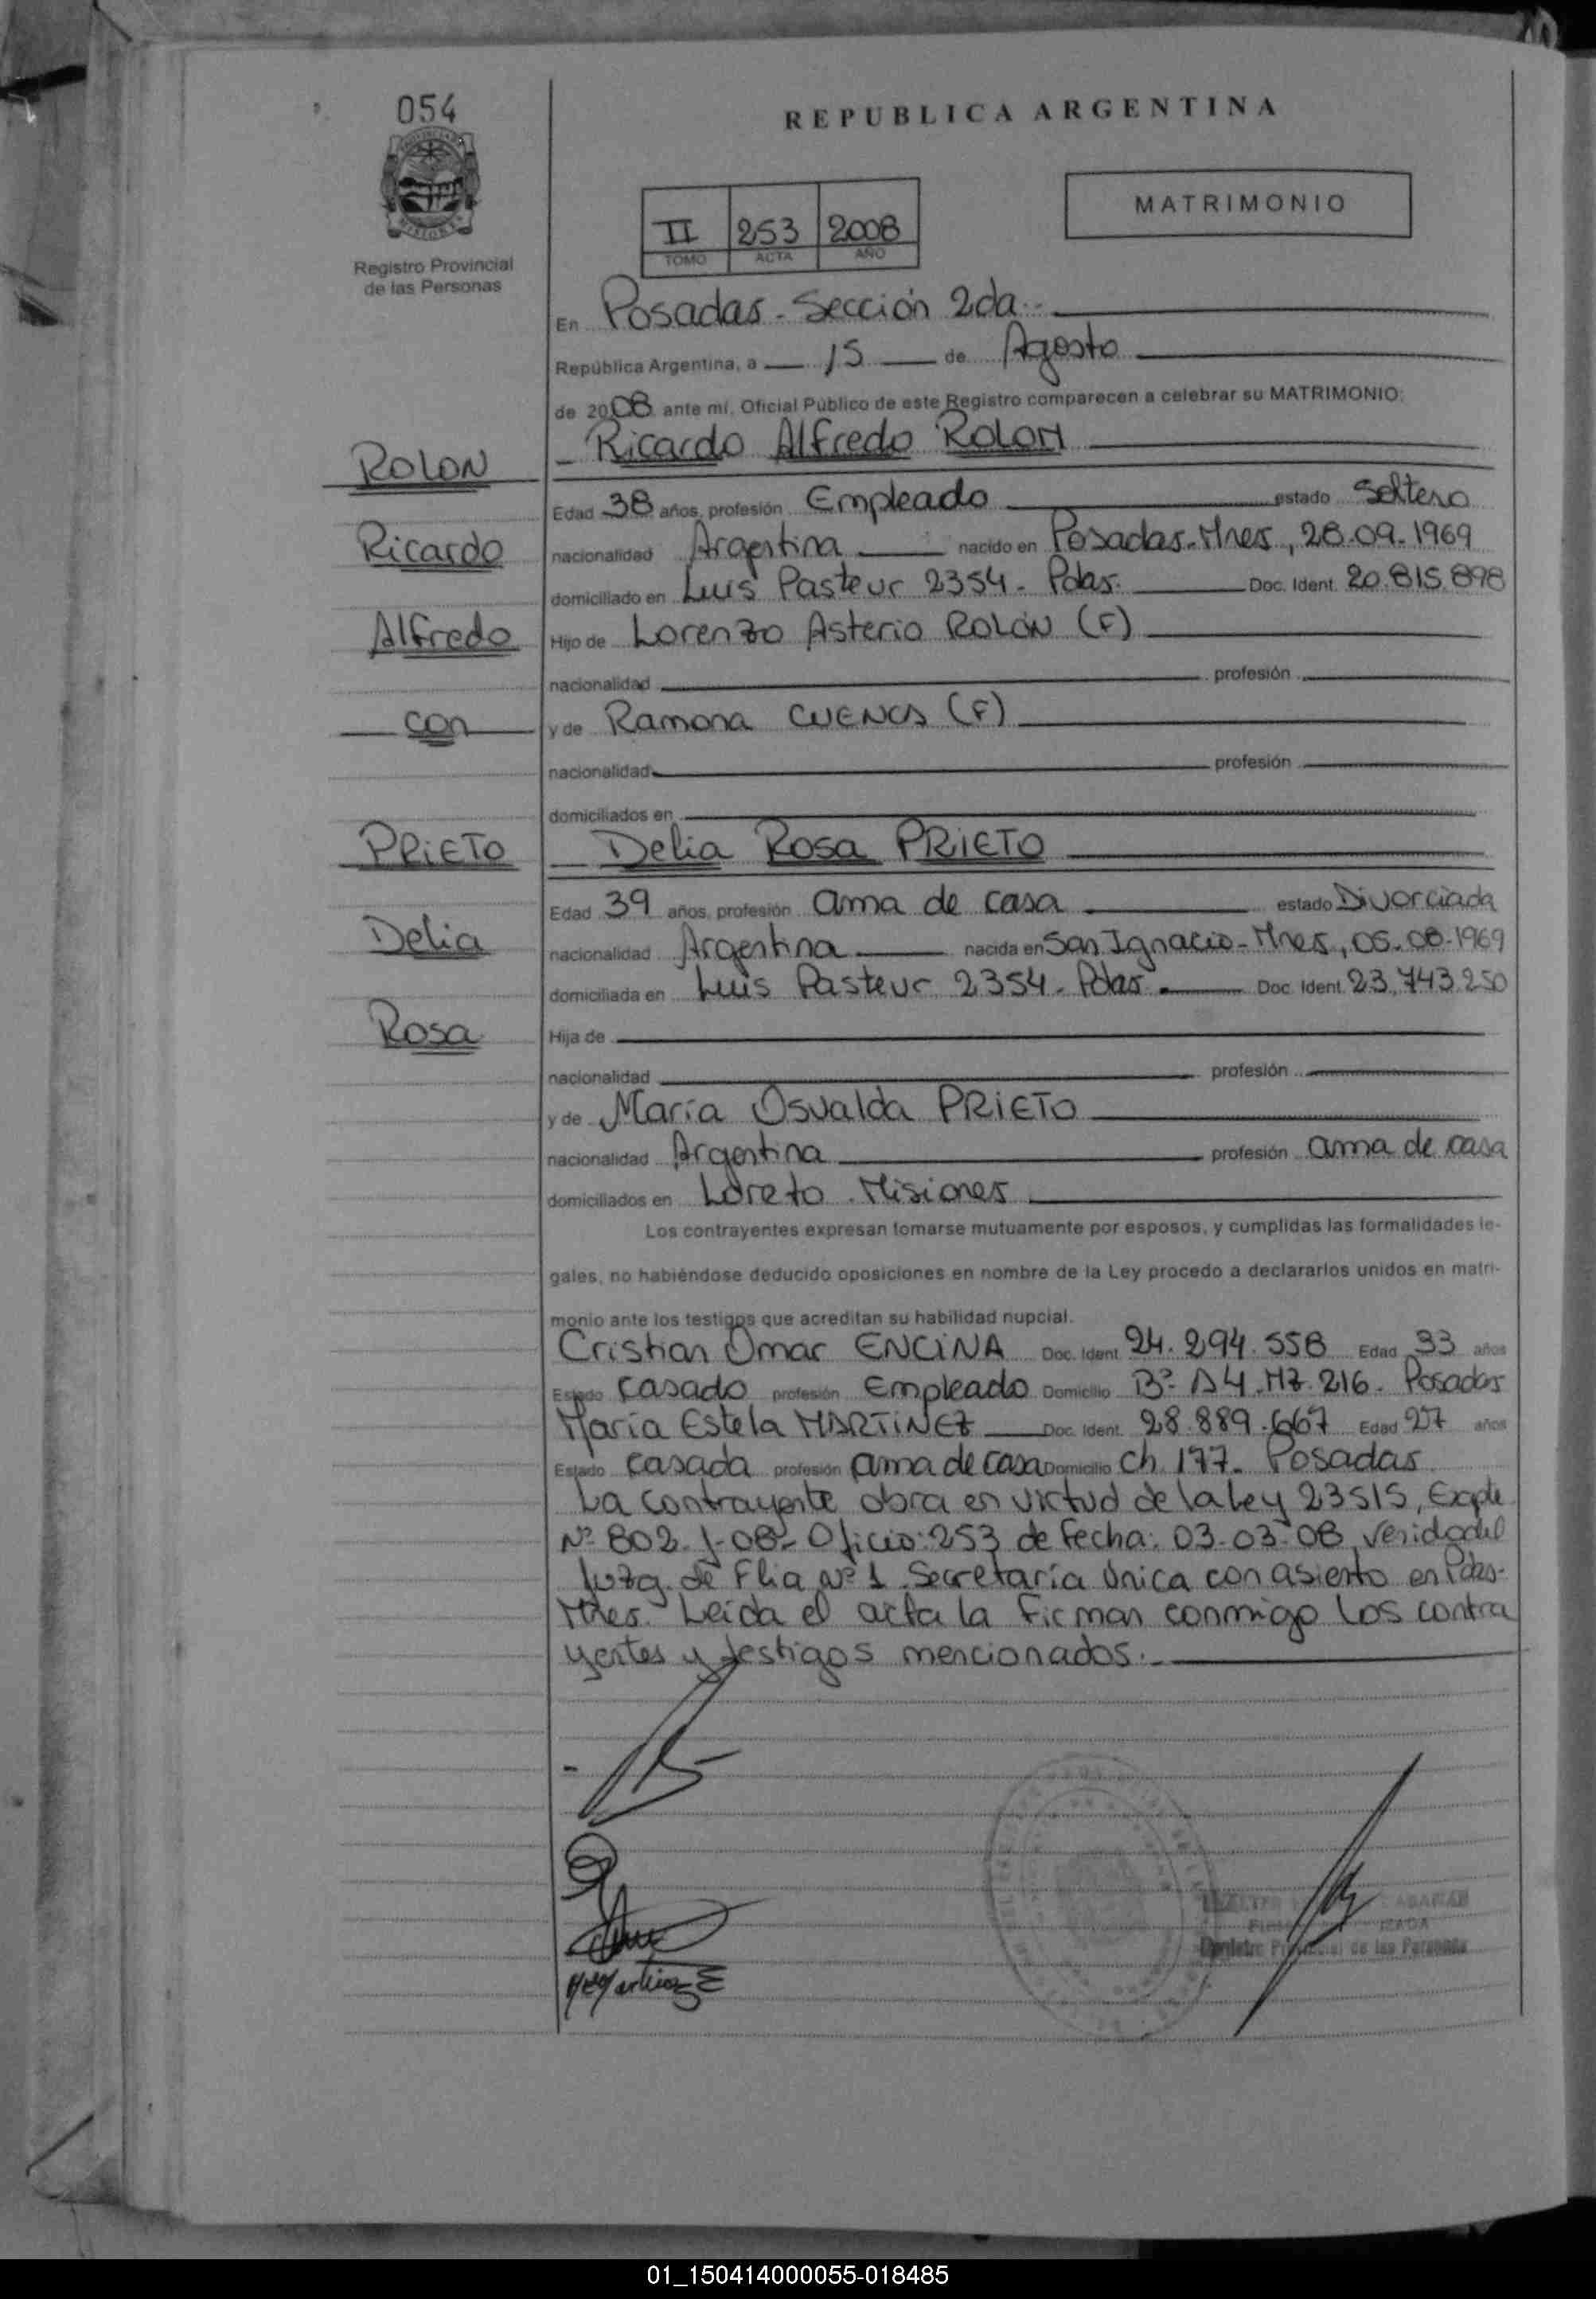 054
REPUBLICA ARGENTINA
MATRIMONIO
II 253 2008
TOMO ACTA AÑO
Registro Provincial
de las Personas
En Posadas - Sección 2da.-
República Argentina, a 15 de Agosto
de 2008 ante mí, Oficial Público de este Registro comparecen a celebrar su MATRIMONIO:
Ricardo Alfredo ROLON
ROLON
Edad 38 años, profesión Empleado estado Soltero
Ricardo
nacionalidad Argentina nacido en Posadas-Mnes, 28.09.1969
domiciliado en Luis Pasteur 2354 - Pdas. Doc. Ident. 20.815.898
Alfredo
Hijo de Lorenzo Asterio ROLÓN (F)
nacionalidad profesión
con
y de Ramona CUENCA (F)
nacionalidad profesión
domiciliados en
PRIETO
Delia Rosa PRIETO
Edad 39 años, profesión ama de casa estado Divorciada
Delia
nacionalidad Argentina nacida en San Ignacio - Mnes, 05-08-1969
domiciliada en Luis Pasteur 2354 - Pdas. Doc. Ident. 23.743.250
Rosa
Hija de
nacionalidad profesión
y de María Osvalda PRIETO
nacionalidad Argentina profesión ama de casa
domiciliados en Loreto - Misiones
Los contrayentes expresan tomarse mutuamente por esposos, y cumplidas las formalidades le-
gales, no habiéndose deducido oposiciones en nombre de la Ley procedo a declararlos unidos en matri-
monio ante los testigos que acreditan su habilidad nupcial.
Cristian Omar ENCINA Doc. Ident. 24.294.558 Edad 33 años
Estado Casado profesión Empleado Domicilio Bº A4.Mz.216. Posadas
María Estela MARTINEZ Doc. Ident. 28.889.667 Edad 27 años
Estado Casada profesión ama de casa Domicilio Ch. 177- Posadas
La contrayente obra en virtud de la Ley 23515, Expte
Nº 802-J-08- Oficio: 253 de fecha: 03-03-08, venido del
Juzg. de Flia Nº 1 Secretaría Única con asiento en Pdas-
Mnes. Leída el acta la firman conmigo los contra
yentes y testigos mencionados.-
Registro Provincial de las Personas
01_150414000055-018485